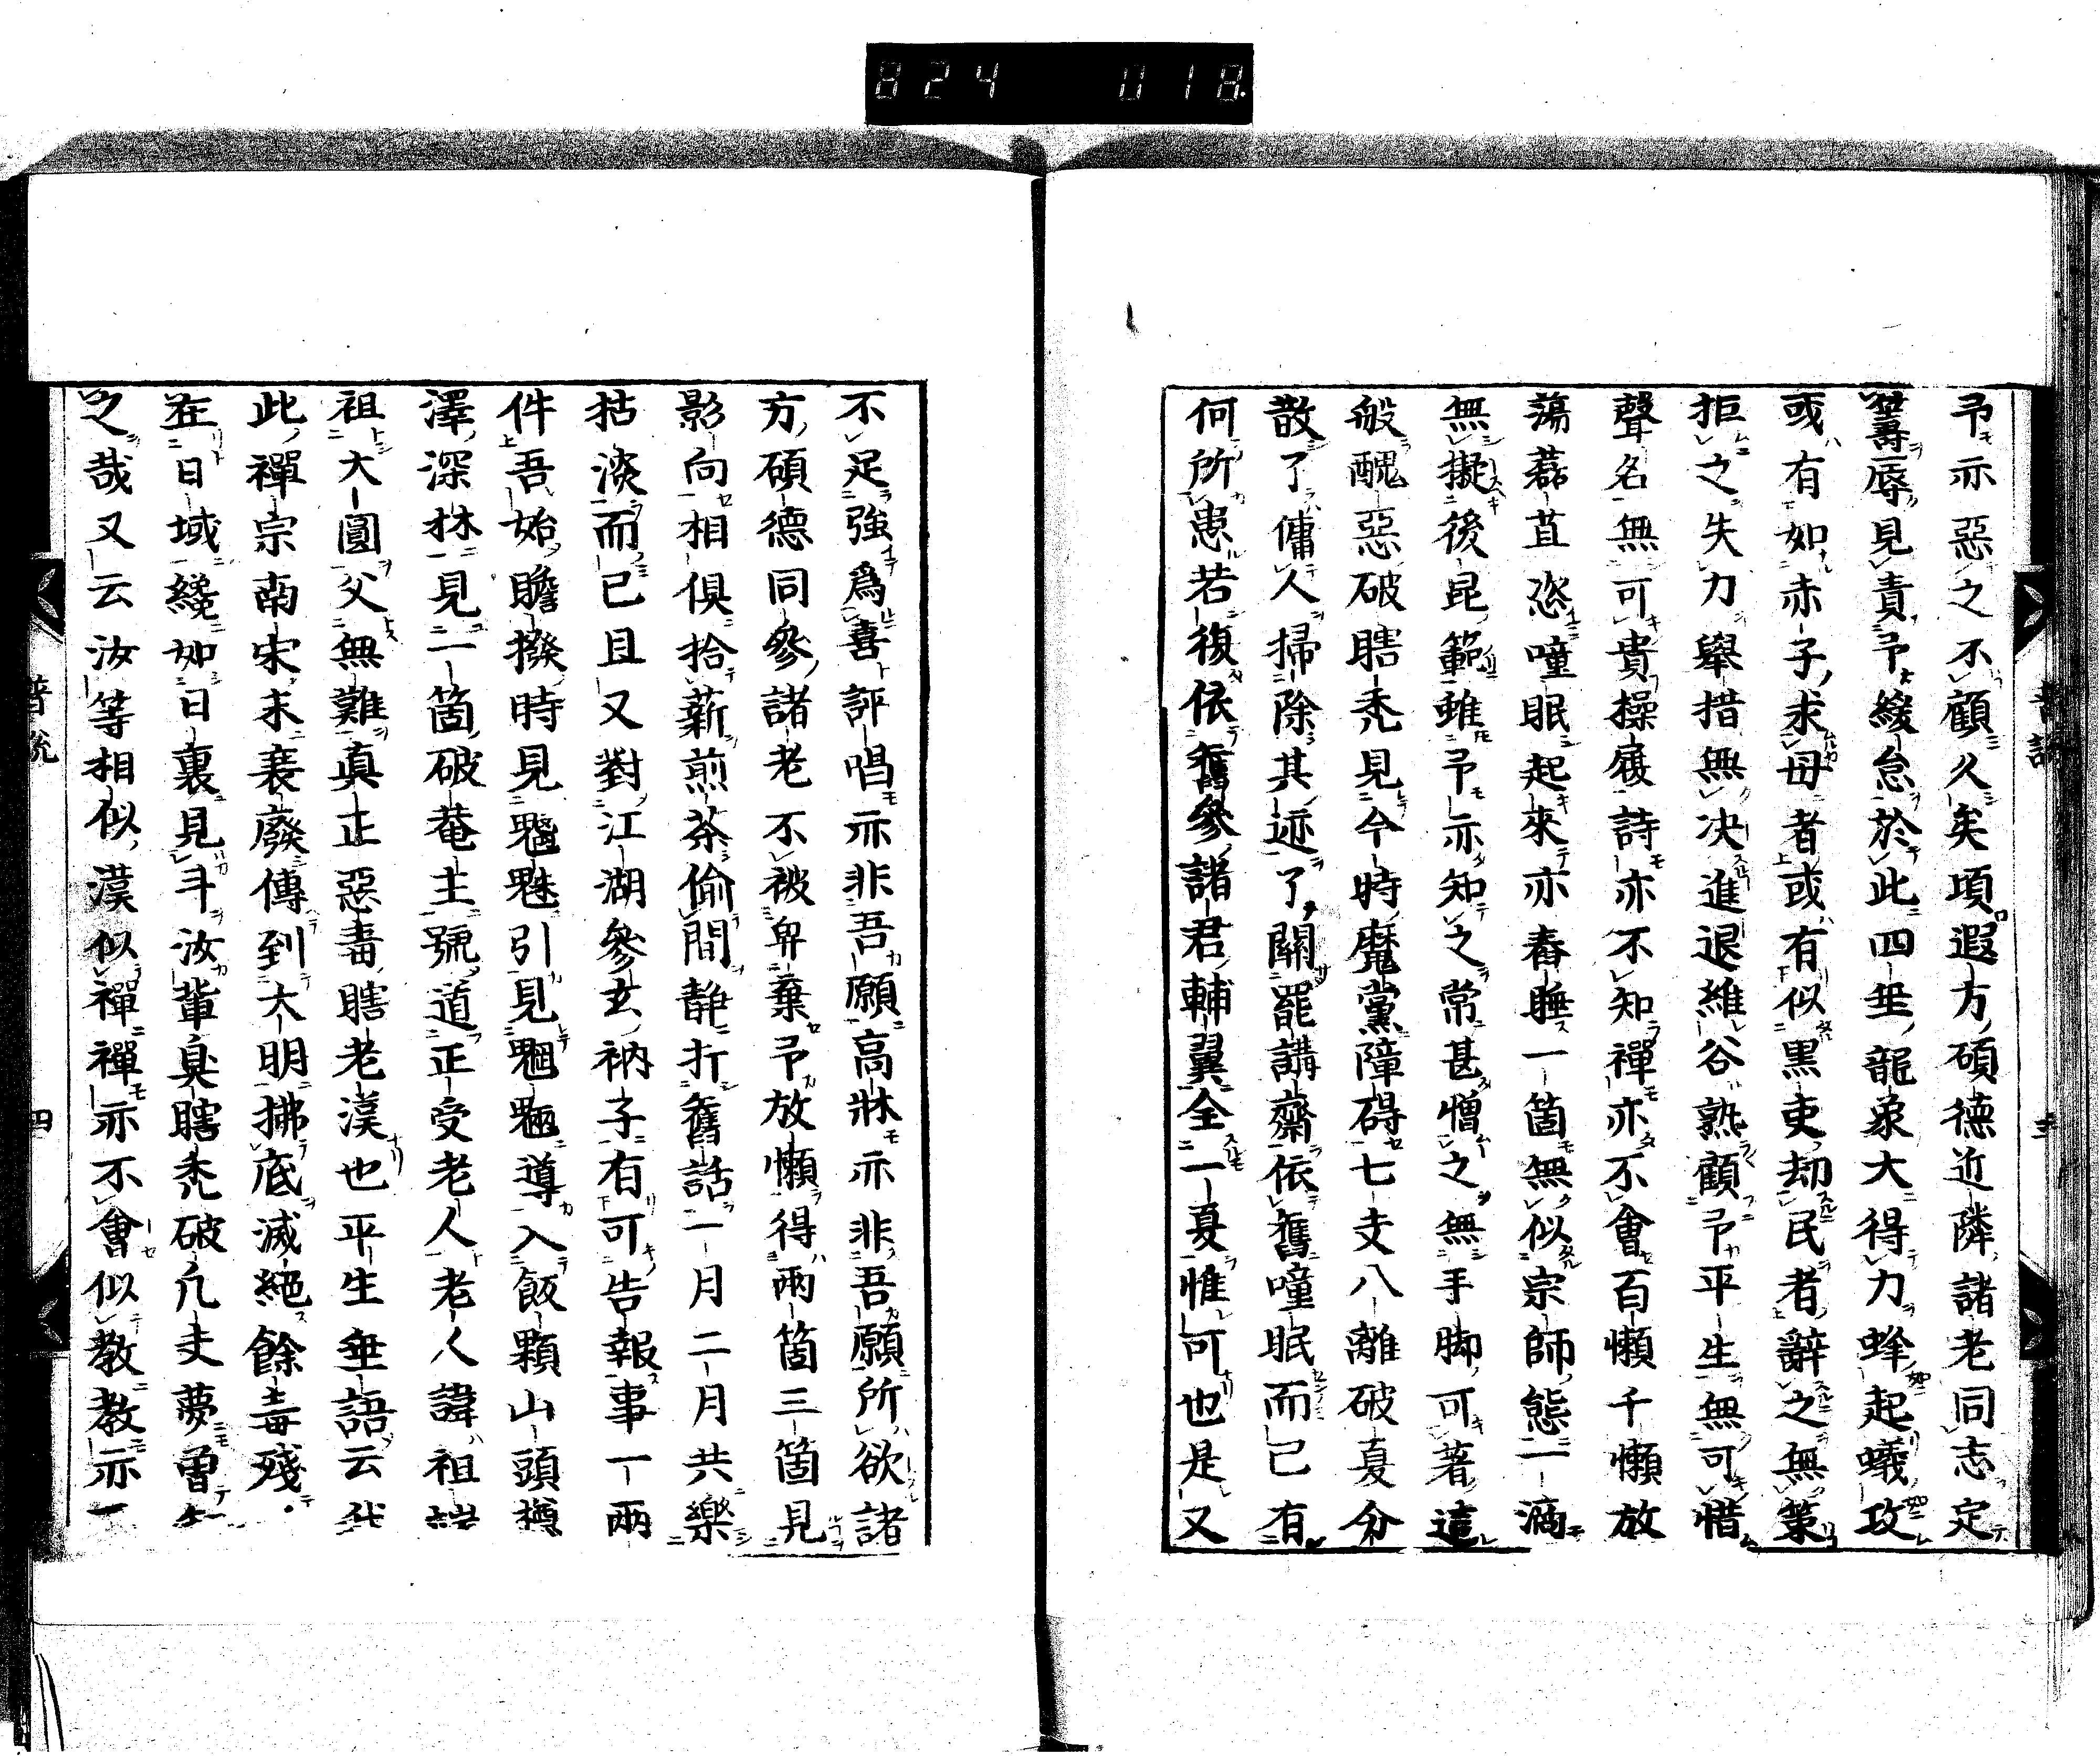 824 018
予亦惡之不顧久矣頃遐方碩德近隣諸老同志定
籌辱見責予緩怠於此四坐龍象大得力蜂起蟻攻
或有如赤子求母者或有似黒吏劫民者辭之無策
拒之失力舉措無决進退維谷熟顧予平生無可惜
聲名無可貴操履詩亦不知禪亦不會百懶千懶放
蕩蕠苴恣噇眠起來亦舂睡一箇無似宗師態一滴
無擬後昆範雖予亦知之常甚憎之無手脚可著這
般醜惡破瞎禿見今時魔黨障碍七支八離破夏分
散了傭人掃除其迹了關罷講齋依舊噇眠而已有
何所患若復依舊參諸君輔翼全一夏惟可也是又
不足強爲喜評唱亦非吾願高牀亦非吾願所欲諸
方碩德同參諸老不被卑棄予放懶得兩箇三箇見
影向相俱拾薪煎茶偷間靜打舊話一月二月共樂
枯淡而已且又對江湖參玄衲子有可告報事一兩
件吾始瞻撥時見魑魅引見魍魎導入飯顆山頭樽
澤深林見一箇破菴主號道正受老人老人諱祖
祖大圓父無難真正惡毒瞎老漢也平生垂語云
此禪宗南宋末衰廢傳到大明拂底滅絕餘毒殘
在日域纔如日裏見斗汝輩臭瞎禿破凡夫夢曾
之哉又云汝等相似漢似禪禪亦不會似教教亦一
普說
四